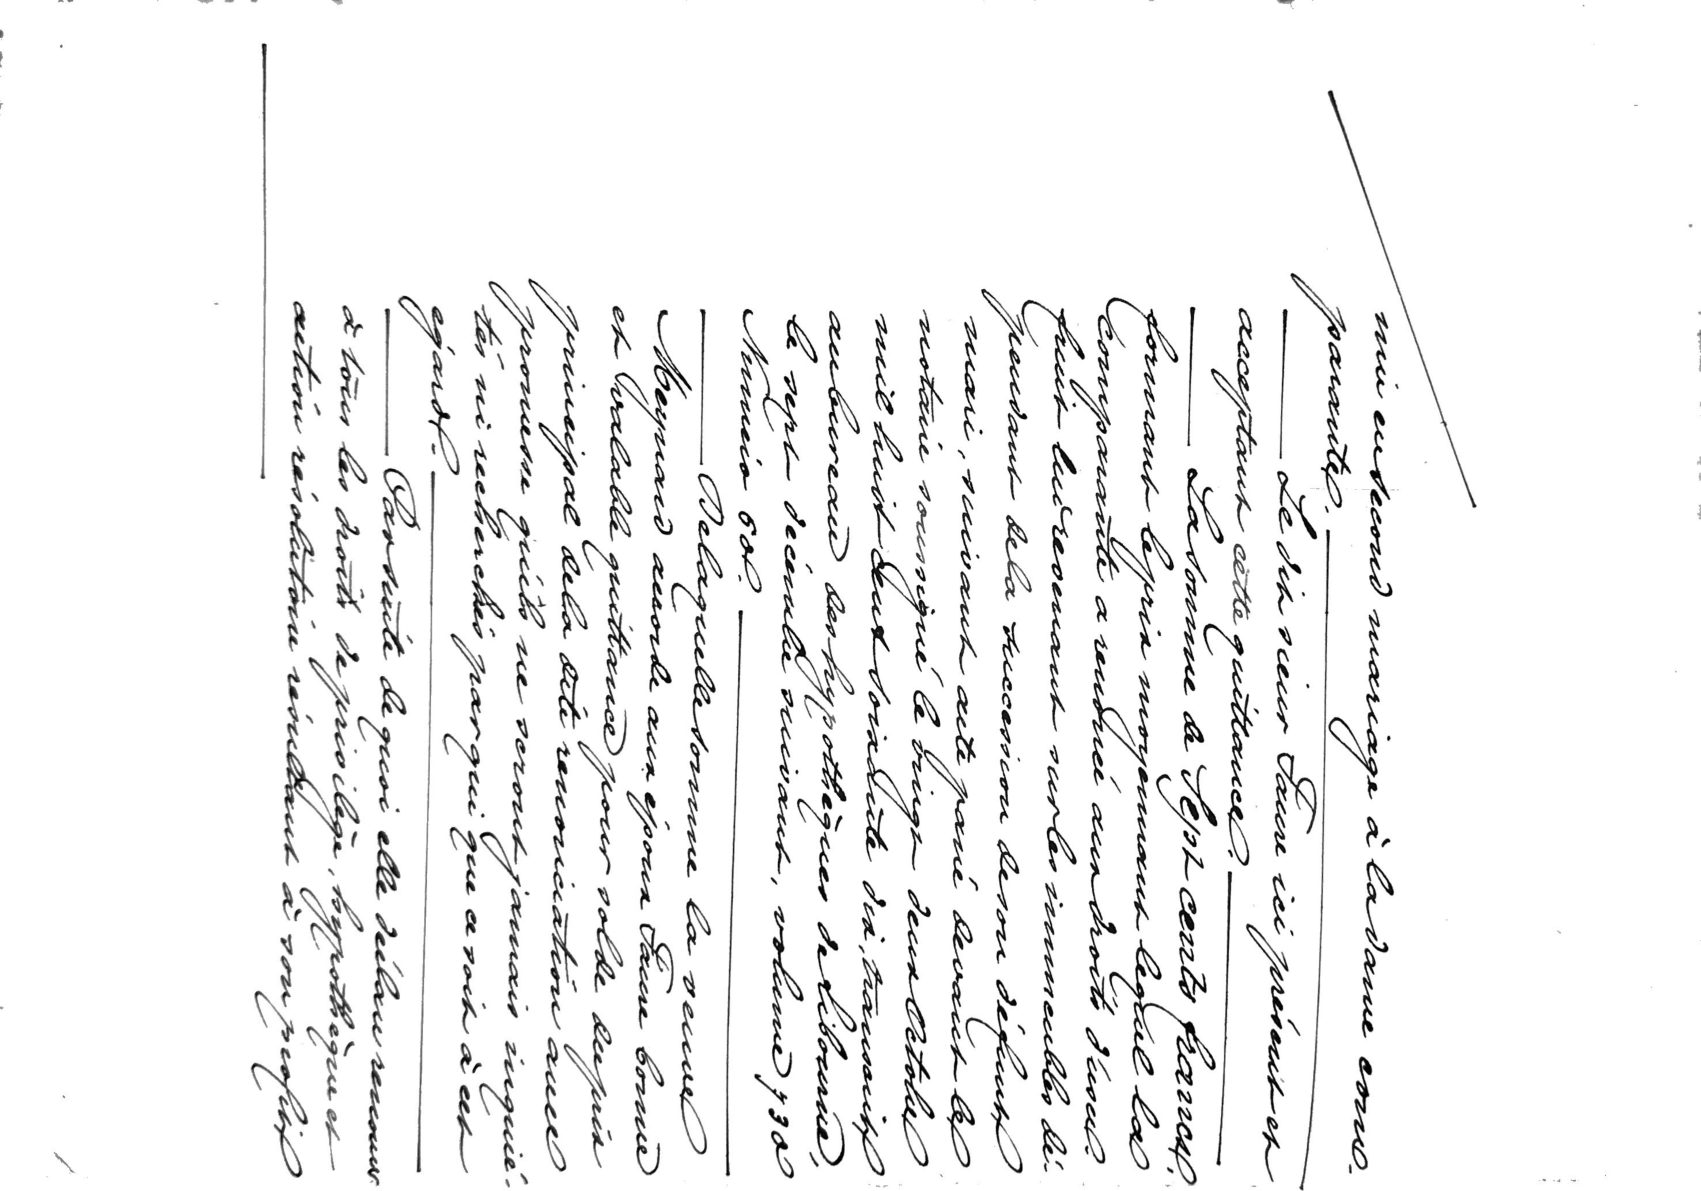 mis en second mariage à la dame com-
parante.
Le dit sieur Faure ici présent et
acceptant cette quittance.
La somme de Sept cents francs,
formant le prix moyennant lequel la
Comparante a renoncé aux droits d'usu-
fruit lui revenant sur les immeubles dé-
pendant de la succession de son défunt
mari, suivant acte passé devant le
notaire soussigné le vingt deux Octobre
mil huit cent soixante dix, transcrit
au bureau des hypothèques de Libourne,
le sept décembre suivant, volume 730
Numéro 60.
De laquelle somme la veuve
Meynard accorde aux époux Faure bonne
et valable quittance pour solde du prix
principal de la dite renonciation avec
promesse qu'ils ne seront jamais inquié-
tés ni recherchés par qui que ce soit à cet
égard.
Par suite de quoi elle déclare renoncer
à tous les droits de privilège, hypothèque et
action résolutoire résultant à son profit